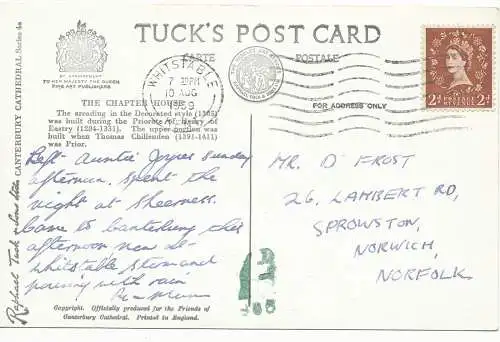 TUCK'S POST CARD
CARTE POSTALE
BY APPOINTMENT
TO HER MAJESTY THE QUEEN
FINE ART PUBLISHERS
CANTERBURY CATHEDRAL Series 4a
WHITSTABLE
7 PM
10 AUG
1959
FOR ADDRESS ONLY
2d REVENUE 2d
THE CHAPTER HOUSE
The arcading in the Decorated style (1305)
was built during the Priorate of Henry of
Eastry (1284-1331). The upper portion was
built when Thomas Chillenden (1391-1411)
was Prior.
Left Auntie Joyces Sunday
afternoon. Spent the
night at Sheerness.
Came to Canterbury this
afternoon now at
Whitstable Storm and
pouring with rain
MR. D FROST
26, LAMBERT RD,
SPROWSTON,
NORWICH,
NORFOLK
Raphael Tuck & Sons Ltd
Copyright. Officially produced for the Friends of
Canterbury Cathedral. Printed in England.